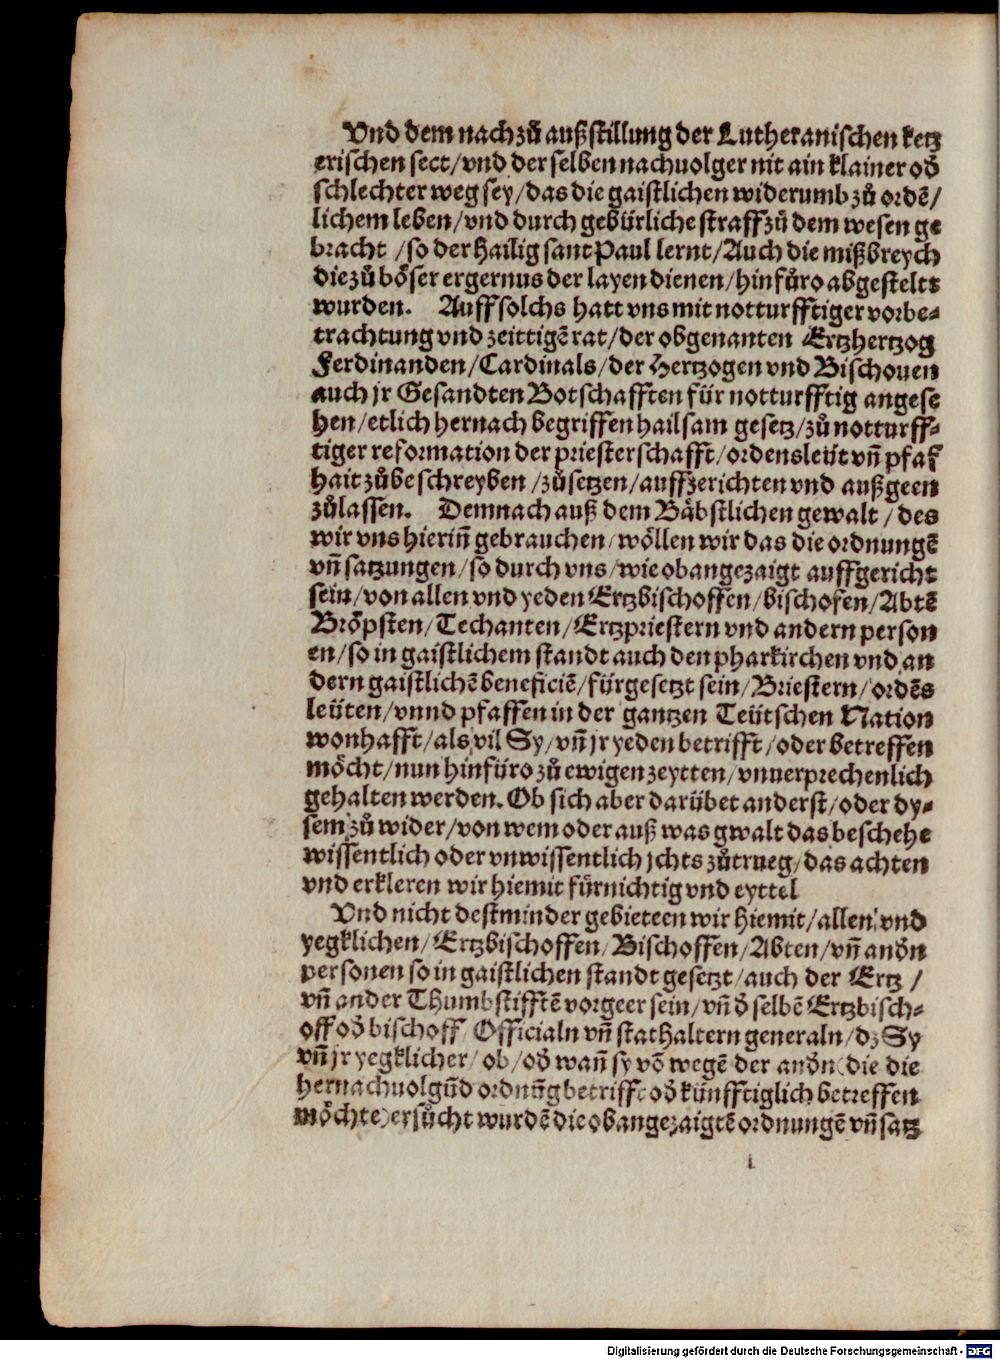 Vnd dem nach zů außstillung der Lutheranischen ketz
erischen sect/vnd der selben nachuolger nit ain klainer od̃
schlechter weg sey/das die gaistlichen widerumb zů ordẽ/
lichem leben/vnd durch gebürliche straff zů dem wesen ge
bracht /so der Hailig sant Paul lernt/Auch die mißbreych
die zů böser ergernus der layen dienen/hinfůro abgestelt
wurden. Auff solchs hatt vns mit notturfftiger vorbe⸗
trachtung vnd zeittigẽ rat/der obgenanten Ertzhertzog
Ferdinanden/Cardinals/der Hertzogen vnd Bischouen
auch jr Gesandten Botschafften für notturfftig angese
hen/etlich hernach begriffen hailsam gesetz/zů notturff⸗
tiger reformation der priesterschafft/ordensleüt vñ pfaf
hait zůbeschreyben/zůsetzen/auffzerichten vnd außgeen
zůlassen. Demnach auß dem Bäbstlichen gewalt/des
wir vns hieriñ gebrauchen/wöllen wir das die ordnungẽ
vñ satzungen/so durch vns/wie obangezaigt auffgericht
sein/von allen vnd yeden Ertzbischoffen/bischofen/Abtẽ
Bröpsten/Techanten/Ertzpriestern vnd andern person
en/so in gaistlichem standt auch den pharkirchen vnd an
dern gaistlichẽ beneficiẽ/fürgesetzt sein/Briestern/ordẽs
leüten/vnnd pfaffen in der gantzen Teütschen Nation
wonhafft/als vil Sy/vñ jr yeden betrifft/oder betreffen
möcht/nun hinfüro zů ewigen zeytten/vnuerprechenlich
gehalten werden. Ob sich aber darübet anderst/oder dy⸗
sem zů wider/von wem oder auß was gwalt das beschehe
wissentlich oder vnwissentlich jchts zůtrueg/das achten
vnd erkleren wir hiemit fürnichtig vnd eyttel
Vnd nicht destminder gebieteen wir hiemit/allen vnd
yegklichen/Ertzbischoffen/Bischoffen/Abten/vñ and̃n
personen so in gaistlichen standt gesetzt/auch der Ertz /
vñ ander Thumbstifftẽ vorgeer sein/vñ d̃ selbẽ Ertzbisch⸗
off od̃ bischoff Officialn vñ stathaltern generaln/dz Sy
vñ jr yegklicher/ob/od̃ wañ sy võ wegẽ der and̃n (die die
hernachuolgũd ordnũg betrifft od̃ künfftiglich betreffen
möchte) ersůcht wurdẽ die obangezaigtẽ ordnungẽ vñ satz
Digitalisierung gefördert durch die Deutsche Forschungsgemeinschaft - DFG